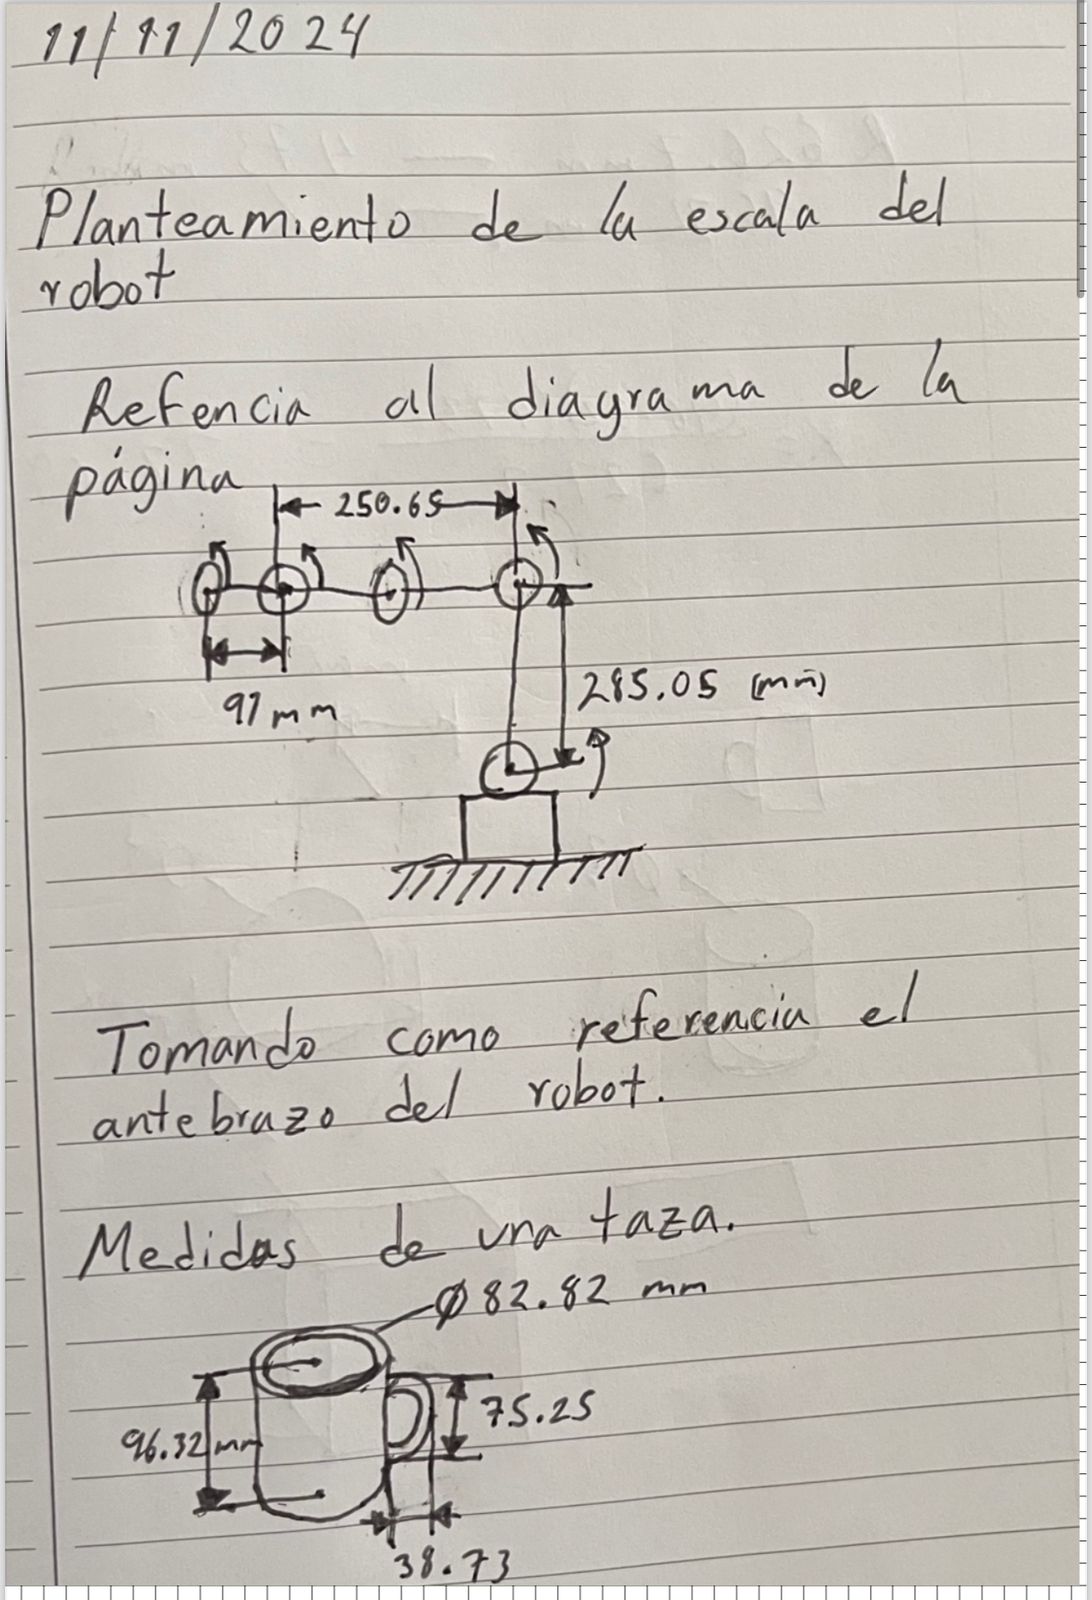 11/11/2024
Planteamiento de la escala del
robot
Refencia al diagrama de la
página
250.65
91 mm
285.05 (mm)
Tomando como referencia el
antebrazo del robot.
Medidas de una taza.
Ø 82.82 mm
75.25
96.32 mm
38.73